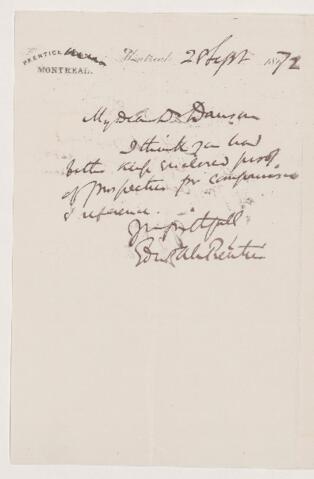 PRENTICE
MONTREAL.
Montreal 28 Sept 1872
My Dear Dr Dawson
I think you had
better keep enclosed proof
of Prospectus for comparison
& reference.
Yrs faithfull
Edwd Alx Prentice